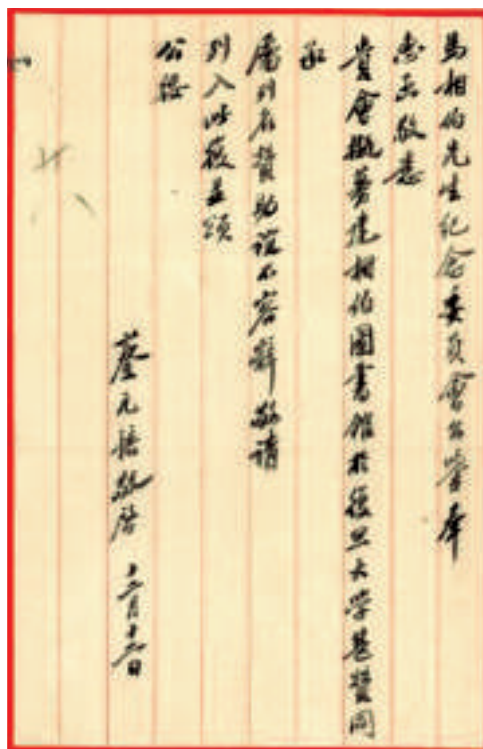 馬相伯先生紀念委員會公鑒奉
惠函敬悉
貴會擬募建相伯圖書館於復旦大學甚贊同
承
屬列名贊助誼不容辭敬請
列入此復並頌
公綏
蔡元培敬啓 十二月十二日